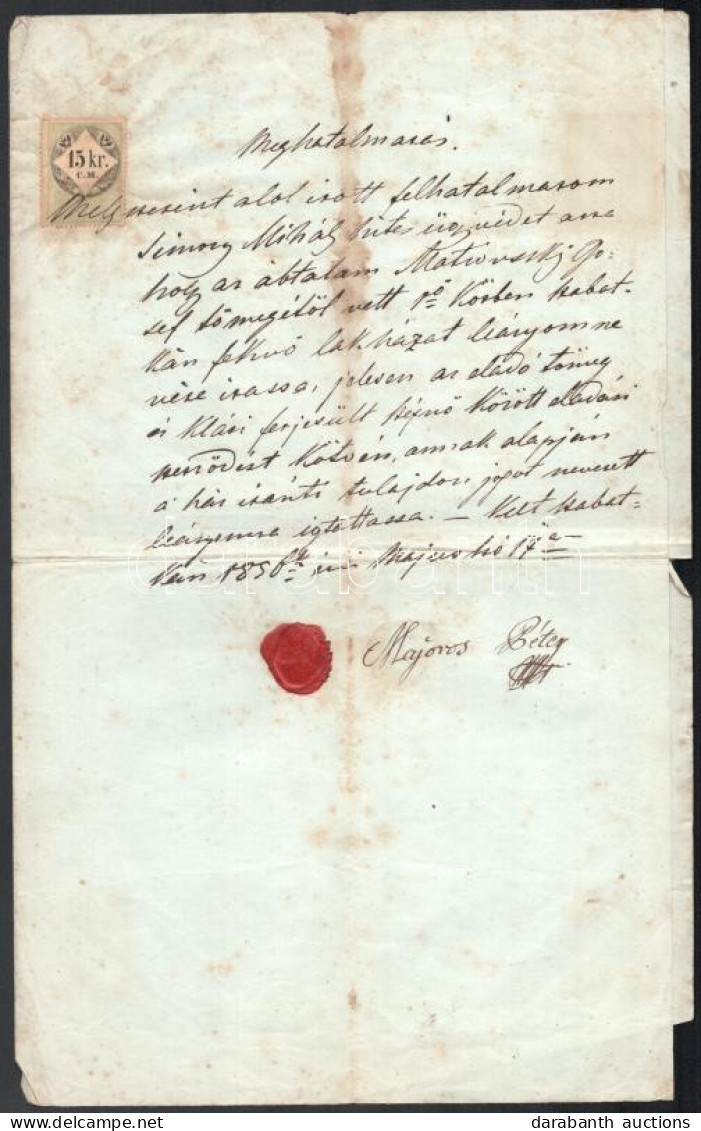 Meghatalmazás.
15 kr.
C.M.
Mely szerint alol irott felhatalmazom
Simony Mihály hites ügyvédet arra
hogy az általam Matkovszkj Jo-
sef tömegétöl vett 1ső Körben szabat-
kán fekvő lakházat leányom ne
vére irassa, jelesen az eladó tömeg
és Klári férjesült közöt eladási
szerződést Kötvén, annak alapján
a ház iránti tulajdon jogot nevezett
leányomra igtattassa. — Kelt szabat-
kán 1856 évi Majus hó 17én
Majoros Péter
darabanth
darabanth auctions